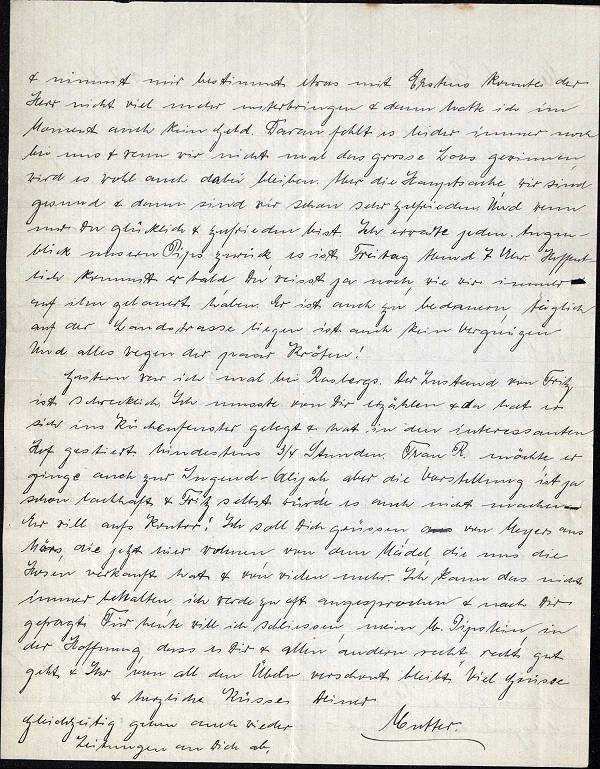 & nimmt mir bestimmt etwas mit. Erstens konnte der
Herr nicht viel mehr unterbringen & dann hatte ich im
Moment auch kein Geld. Daran fehlt es leider immer noch
bei uns & wenn wir nicht mal das grosse Loos gewinnen,
wird es wohl auch dabei bleiben. Aber die Hauptsache, wir sind
gesund & dann sind wir schon sehr zufrieden. Und wenn
nur Du glücklich & zufrieden bist. Ich erwarte jeden Augen-
blick unsern Pips zurück es ist Freitag Abend 7 Uhr. Hoffent-
lich kommt er bald. Du weisst ja noch, wie wir immer
auf ihn gelauert haben. Er ist auch zu bedauern, täglich
auf der Landstrasse liegen ist auch kein Vergnügen
Und alles wegen der paar Kröten!
Gestern war ich mal bei Rosbergs. Der Zustand von Fritz
ist schrecklich. Ich musste von Dir erzählen & da hat er
sich ins Küchenfenster gelegt & hat in den interessanten
Hof gestiert mindestens 3/4 Stunden. Frau R. möchte, er
ginge auch zur Jugend-Alijah aber die Vorstellung ist ja
schon lachhaft & Fritz selbst würde es auch nicht machen
Er will aufs Kontor! Ich soll Dich grüssen von Meyers aus
Mörs, die jetzt hier wohnen von dem Mädel, die uns die
Hosen verkauft hat & von vielen mehr. Ich kann das nicht
immer behalten, ich werde zu oft angesprochen & nach Dir
gefragt. Für heute will ich schliessen, mein lb. Pipslein, in
der Hoffnung, dass es Dir & allen andern recht, recht gut
geht & Ihr von all den Übeln verschont bleibt. Viel Grüsse
& herzliche Küsse Deiner
Mutter.
Gleichzeitig gehen auch wieder
Zeitungen an Dich ab.